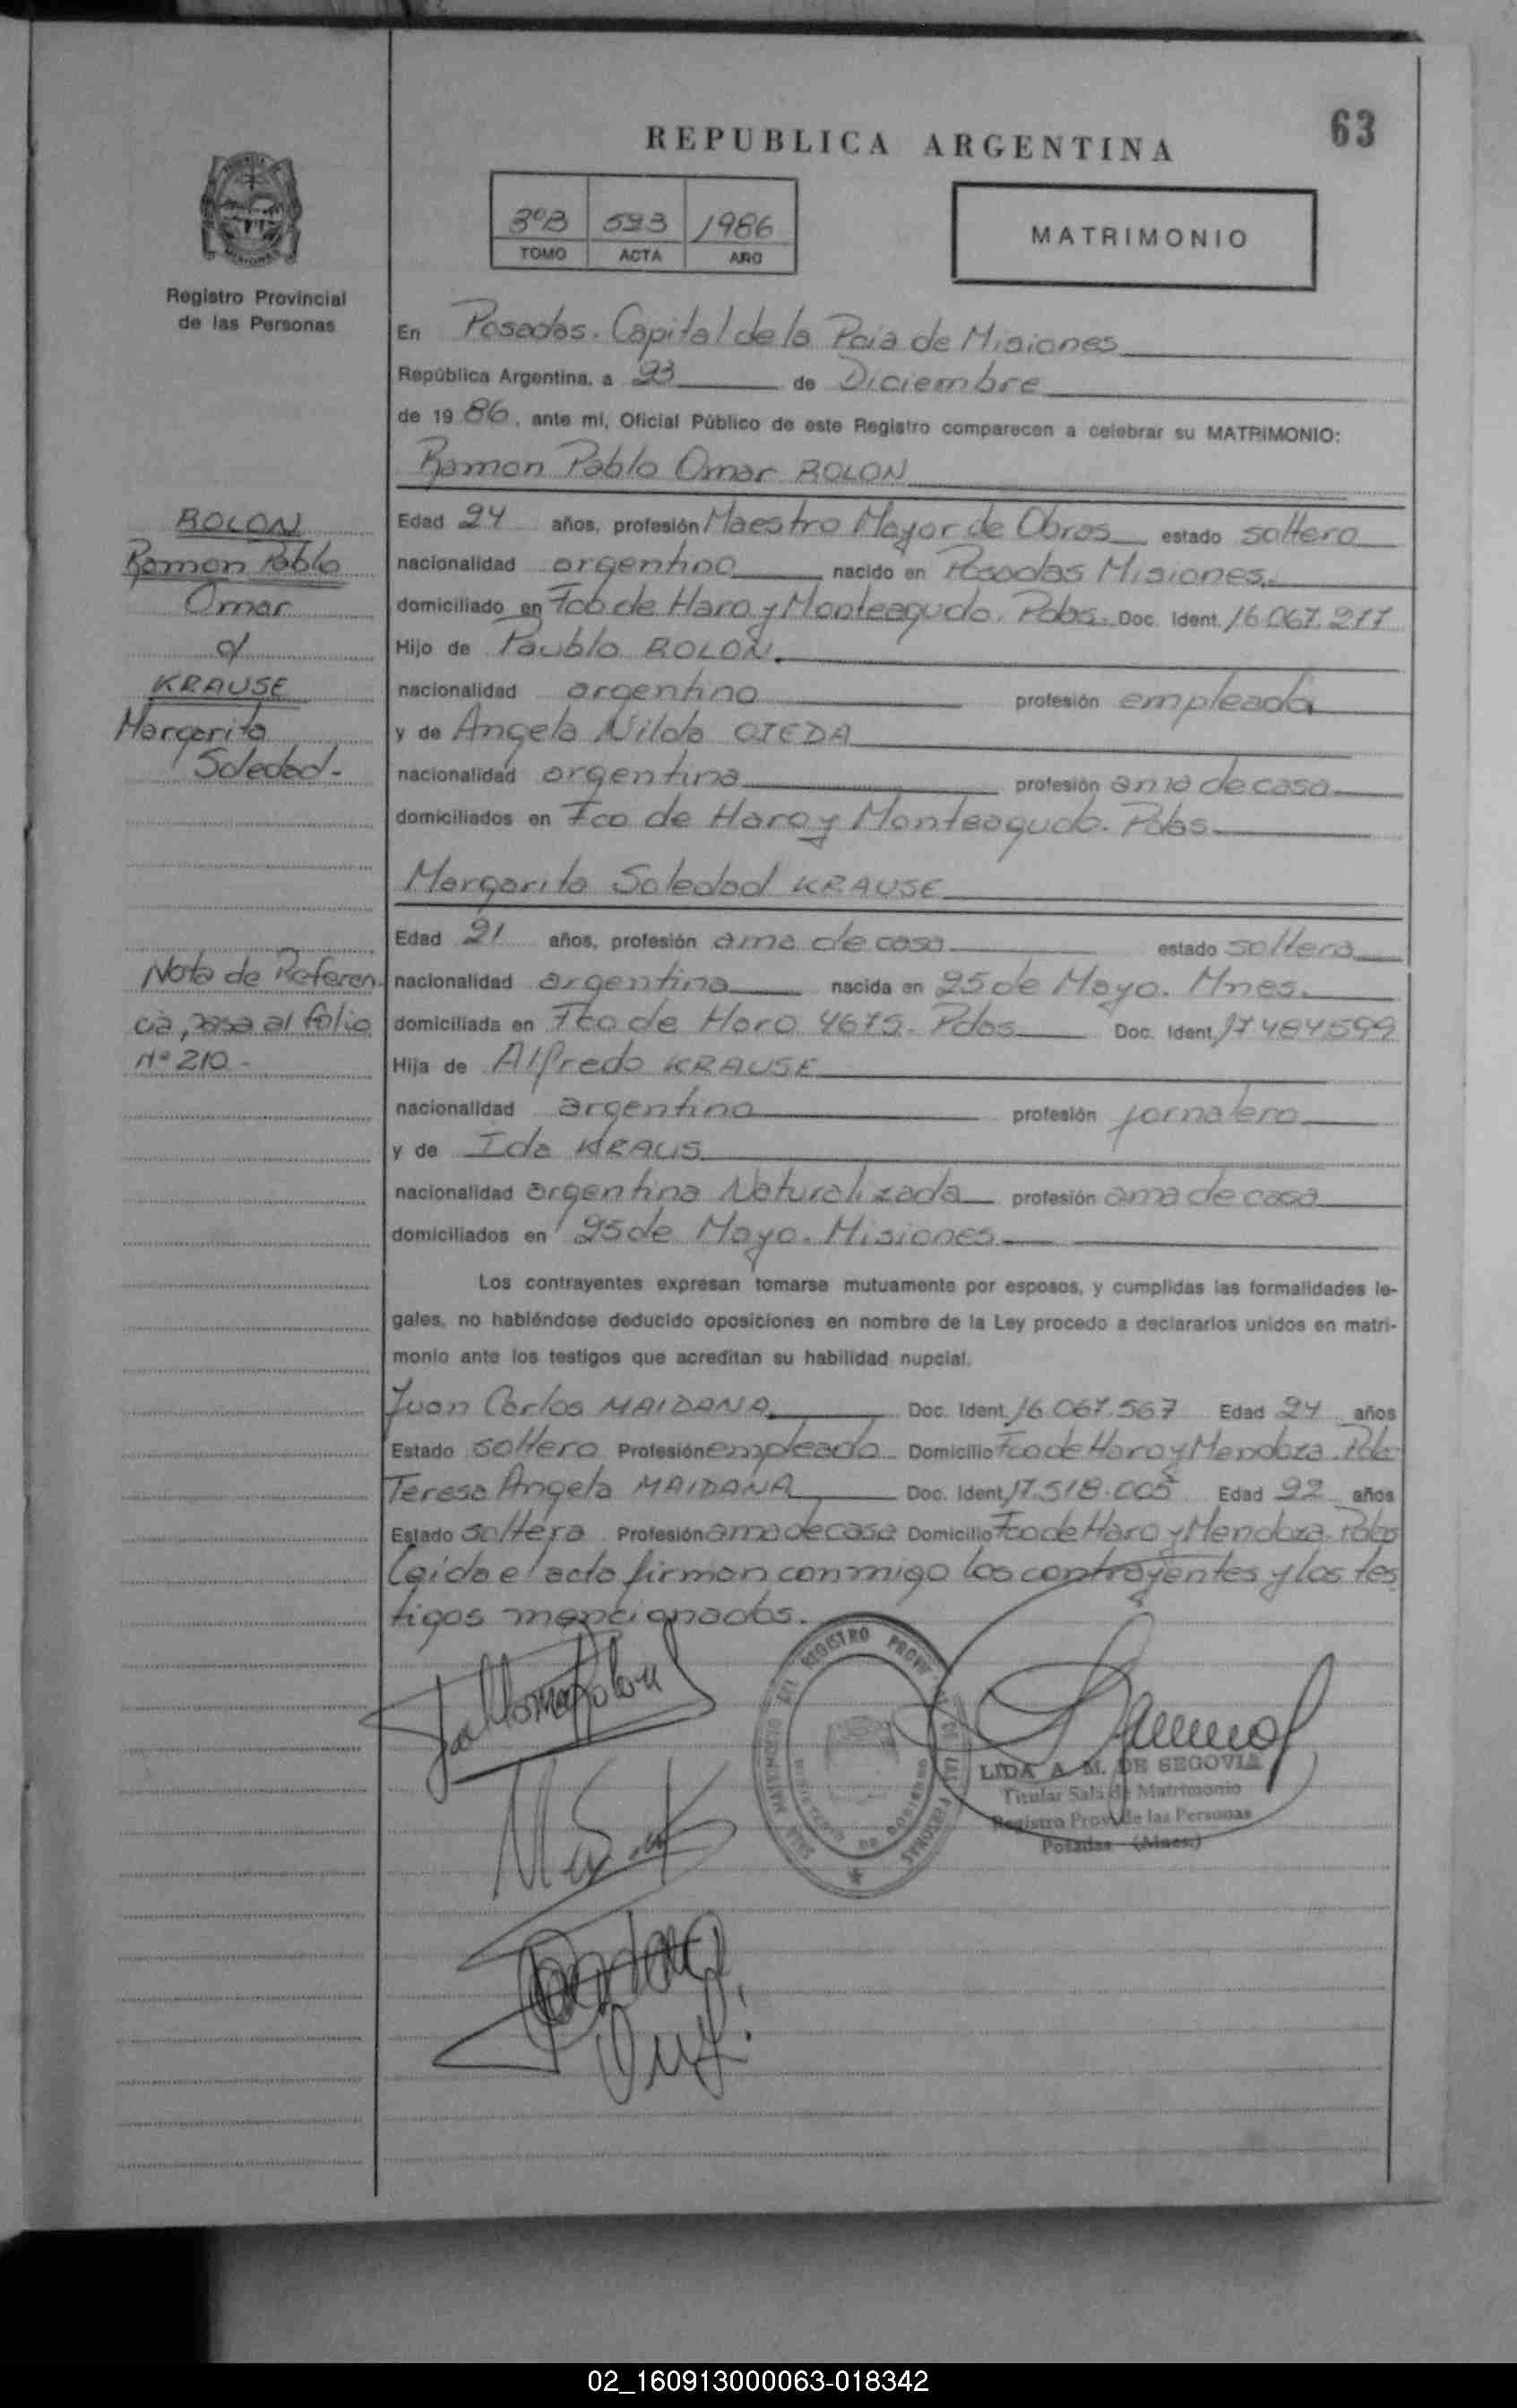 63
REPUBLICA ARGENTINA
3ºB 593 1986
TOMO ACTA AÑO
MATRIMONIO
Registro Provincial
de las Personas
En Posadas. Capital de la Pcia de Misiones
República Argentina, a 23 de Diciembre
de 1986, ante mí, Oficial Público de este Registro comparecen a celebrar su MATRIMONIO:
Ramon Pablo Omar ROLON
Edad 24 años, profesión Maestro Mayor de Obras estado soltero
nacionalidad argentino nacido en Posadas Misiones.
domiciliado en Fco de Haro y Monteagudo. Pdas. Doc. Ident. 16.067.277
Hijo de Paublo ROLON.
nacionalidad argentino profesión empleado
y de Angela Nilda OJEDA
nacionalidad argentina profesión ama de casa
domiciliados en Fco de Haro y Monteagudo. Pdas.
Margarita Soledad KRAUSE
Edad 21 años, profesión ama de casa estado soltera
nacionalidad argentina nacida en 25 de Mayo. Mnes.
domiciliada en Fco de Haro 4675. Pdas Doc. Ident. 17.484.599
Hija de Alfredo KRAUSE
nacionalidad argentino profesión jornalero
y de Ida KRAUS
nacionalidad argentina Naturalizada profesión ama de casa
domiciliados en 25 de Mayo. Misiones.
ROLON
Ramon Pablo
Omar
c/
KRAUSE
Margarita
Soledad-
Nota de Referen-
cia, pasa al folio
Nº 210.-
Los contrayentes expresan tomarse mutuamente por esposos, y cumplidas las formalidades le-
gales, no habiéndose deducido oposiciones en nombre de la Ley procedo a declararlos unidos en matri-
monio ante los testigos que acreditan su habilidad nupcial.
Juan Carlos MAIDANA. Doc. Ident. 16.067.567 Edad 24 años
Estado soltero Profesión empleado Domicilio Fco de Haro y Mendoza. Pdas
Teresa Angela MAIDANA Doc. Ident. 17.518.005 Edad 22 años
Estado soltera Profesión ama de casa Domicilio Fco de Haro y Mendoza. Pdas
Leida el acta firman conmigo los contrayentes y los tes
tigos mencionados.
REGISTRO PROV. DE LAS PERSONAS
SALA MATRIMONIO
MINISTERIO DE GOBIERNO
LIDA A. M. DE SEGOVIA
Titular Sala de Matrimonio
Registro Prov. de las Personas
Posadas (Mnes.)
02_160913000063-018342